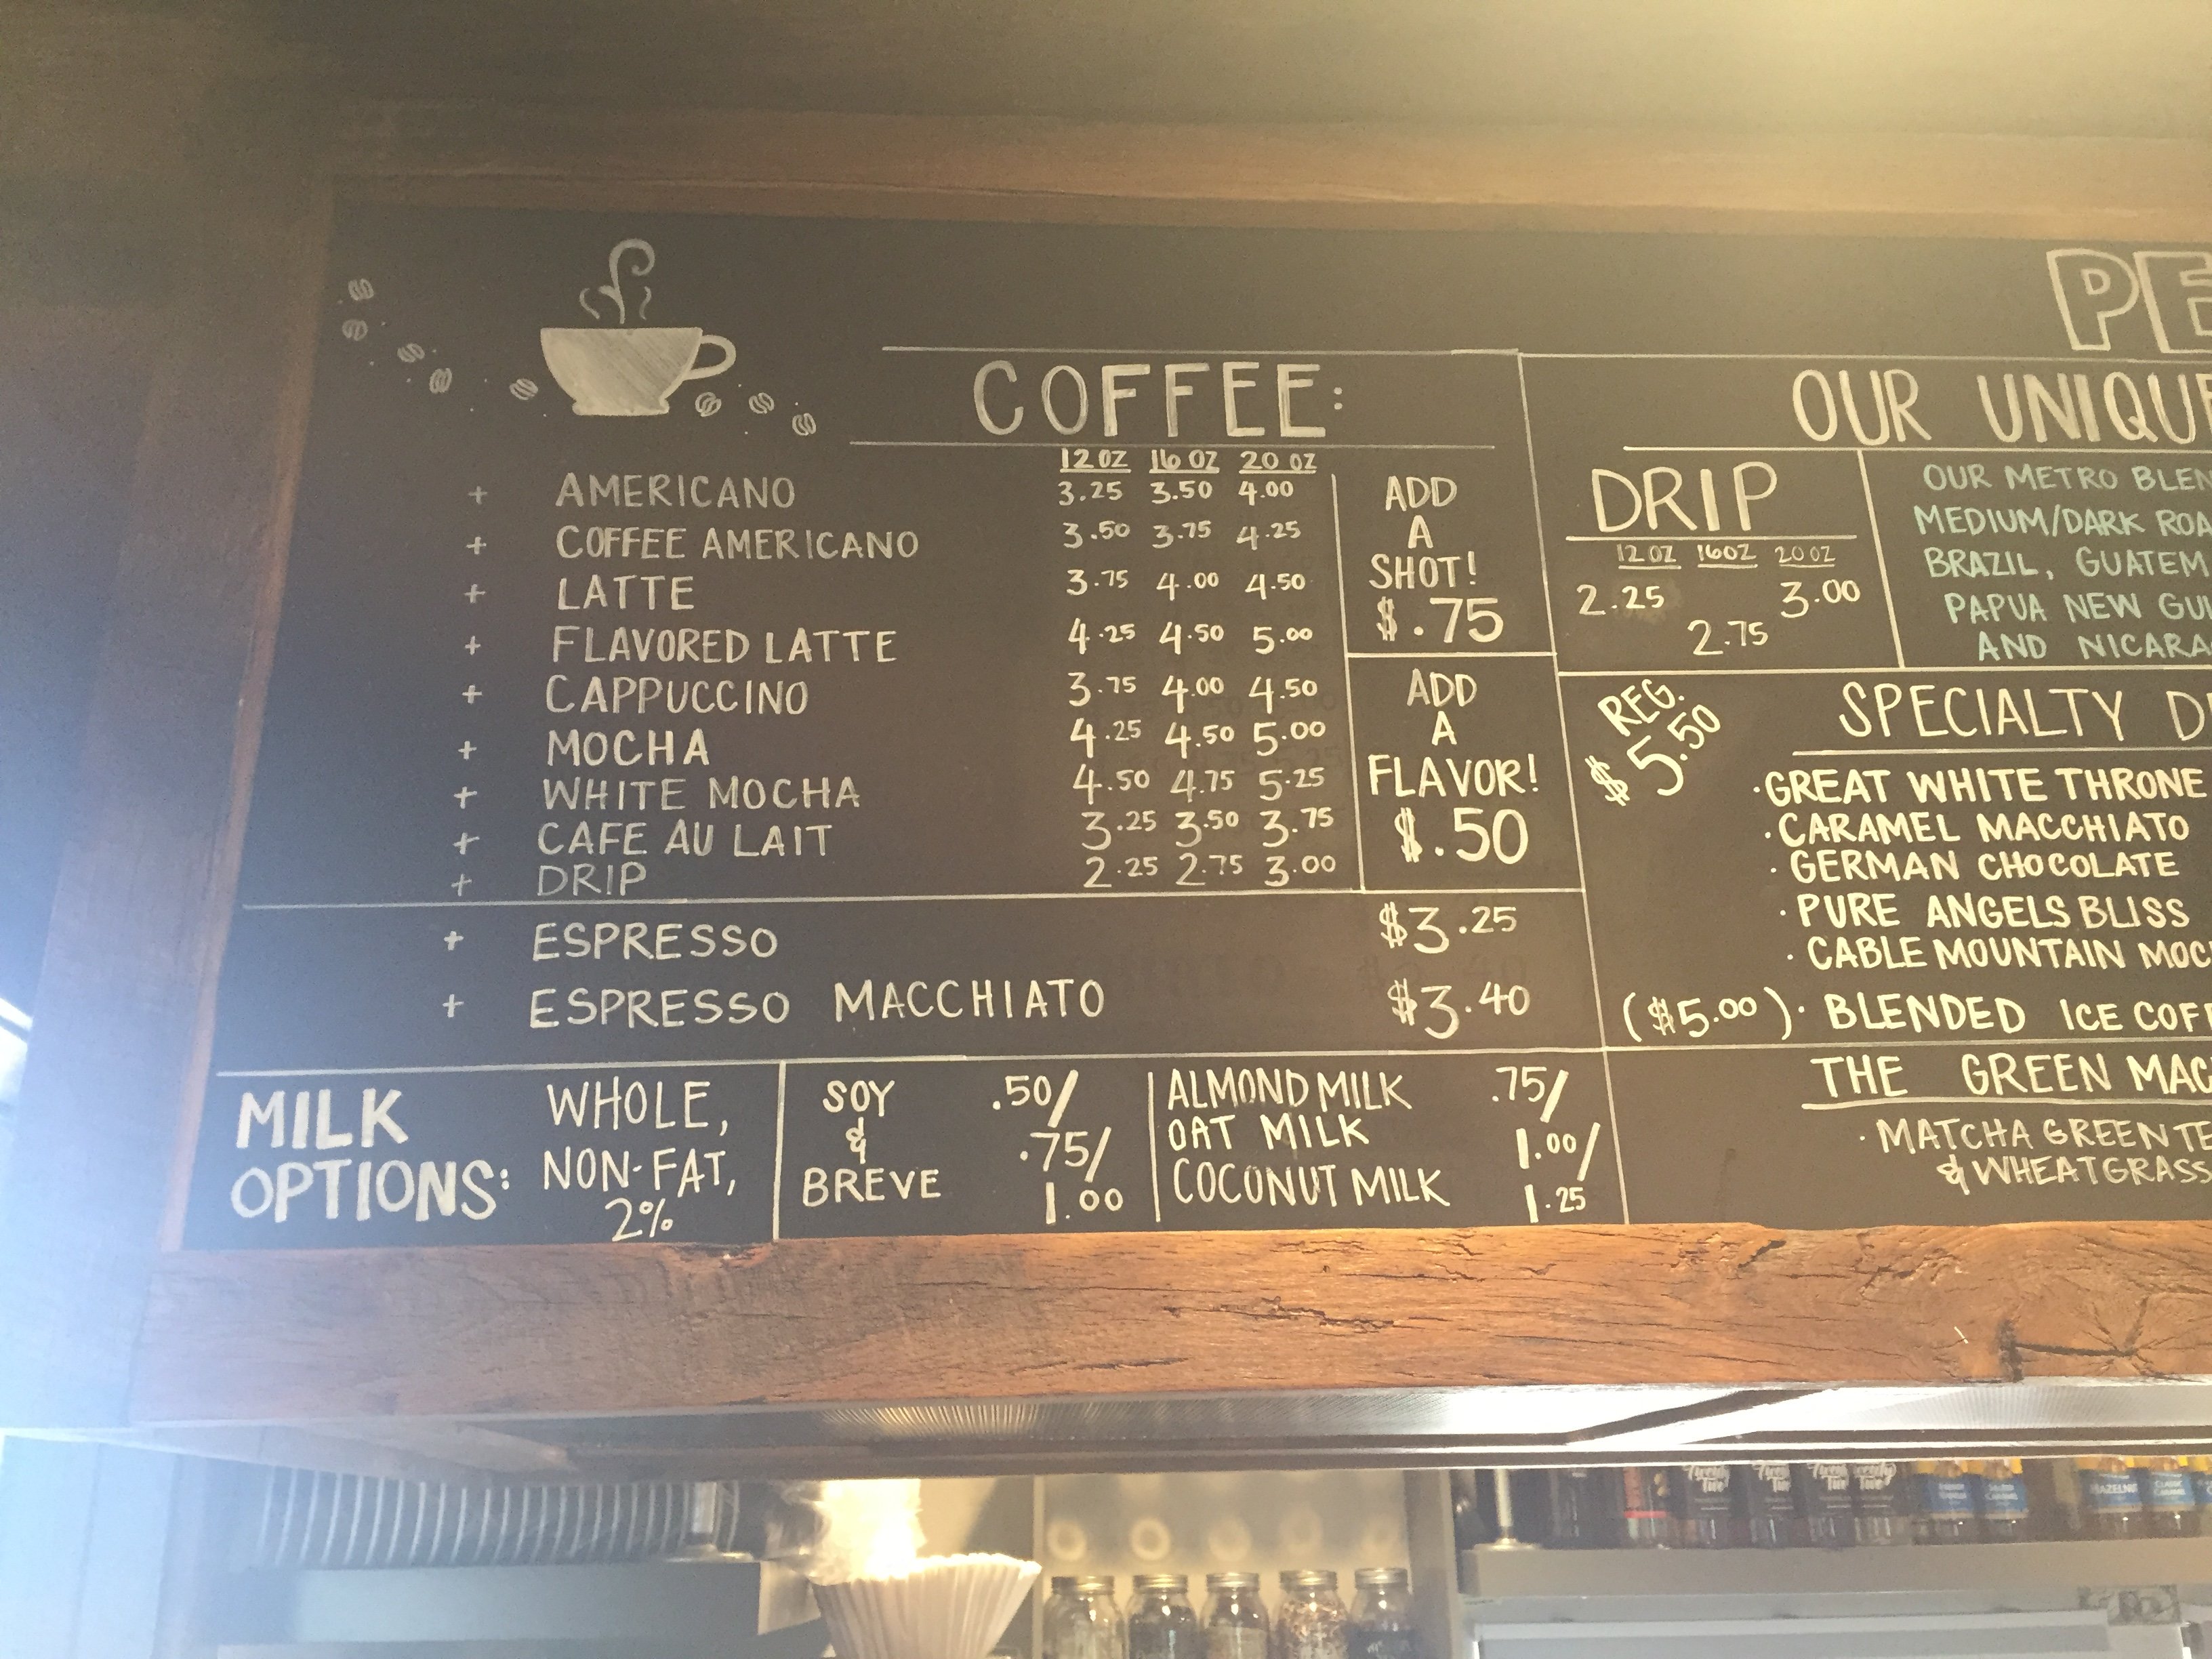 PE
COFFEE:
12 OZ 16 OZ 20 OZ
+ AMERICANO 3.25 3.50 4.00
+ COFFEE AMERICANO 3.50 3.75 4.25
+ LATTE 3.75 4.00 4.50
+ FLAVORED LATTE 4.25 4.50 5.00
+ CAPPUCCINO 3.75 4.00 4.50
+ MOCHA 4.25 4.50 5.00
+ WHITE MOCHA 4.50 4.75 5.25
+ CAFE AU LAIT 3.25 3.50 3.75
+ DRIP 2.25 2.75 3.00
ADD
A
SHOT!
$.75
ADD
A
FLAVOR!
$.50
+ ESPRESSO $3.25
+ ESPRESSO MACCHIATO $3.40
MILK
OPTIONS:
WHOLE,
NON-FAT,
2%
SOY
&
BREVE
.50/
.75/
1.00
ALMOND MILK
OAT MILK
COCONUT MILK
.75/
1.00/
1.25
OUR UNIQUE
DRIP
12 OZ 16 OZ 20 OZ
2.25 3.00
2.75
OUR METRO BLEN
MEDIUM/DARK ROA
BRAZIL, GUATEM
PAPUA NEW GUI
AND NICARA
REG.
$5.50
SPECIALTY D
· GREAT WHITE THRONE
· CARAMEL MACCHIATO
· GERMAN CHOCOLATE
· PURE ANGELS BLISS
· CABLE MOUNTAIN MOC
($5.00) · BLENDED ICE COFF
THE GREEN MAC
· MATCHA GREEN TE
& WHEATGRASS